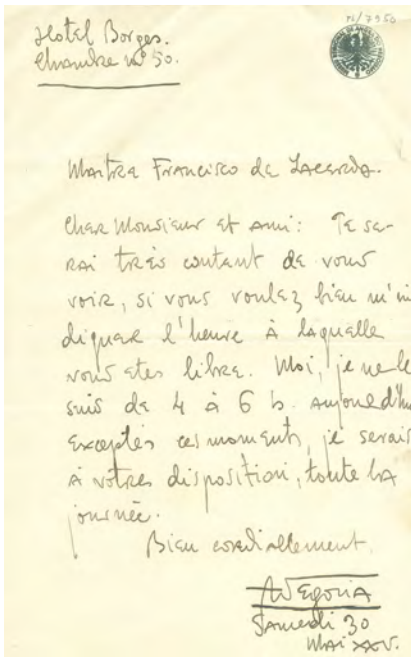 N/7950
Hotel Borges.
Chambre nº 50.
Maitre Francisco de Lacerda.
Cher Monsieur et ami: Je se-
rai très content de vous
voir, si vous voulez bien m'in
diquer l'heure à laquelle
vous etes libre. Moi, je ne le
suis de 4 à 6 h. aujourd'hu
exceptés ces moments, je serais
à votres disposition, toute la
journée.
Bien cordiallement,
Samedi 30
Mai XXV.